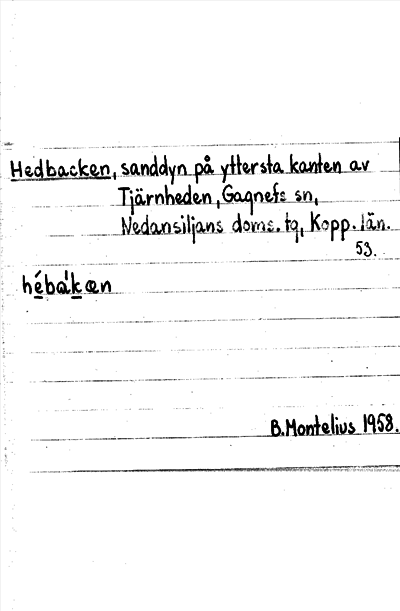 Hedbacken, sanddyn på yttersta kanten av
Tjärnheden, Gagnefs sn,
Nedansiljans doms. tq, Kopp. län.
53.
hébákæn
B. Montelius 1958.